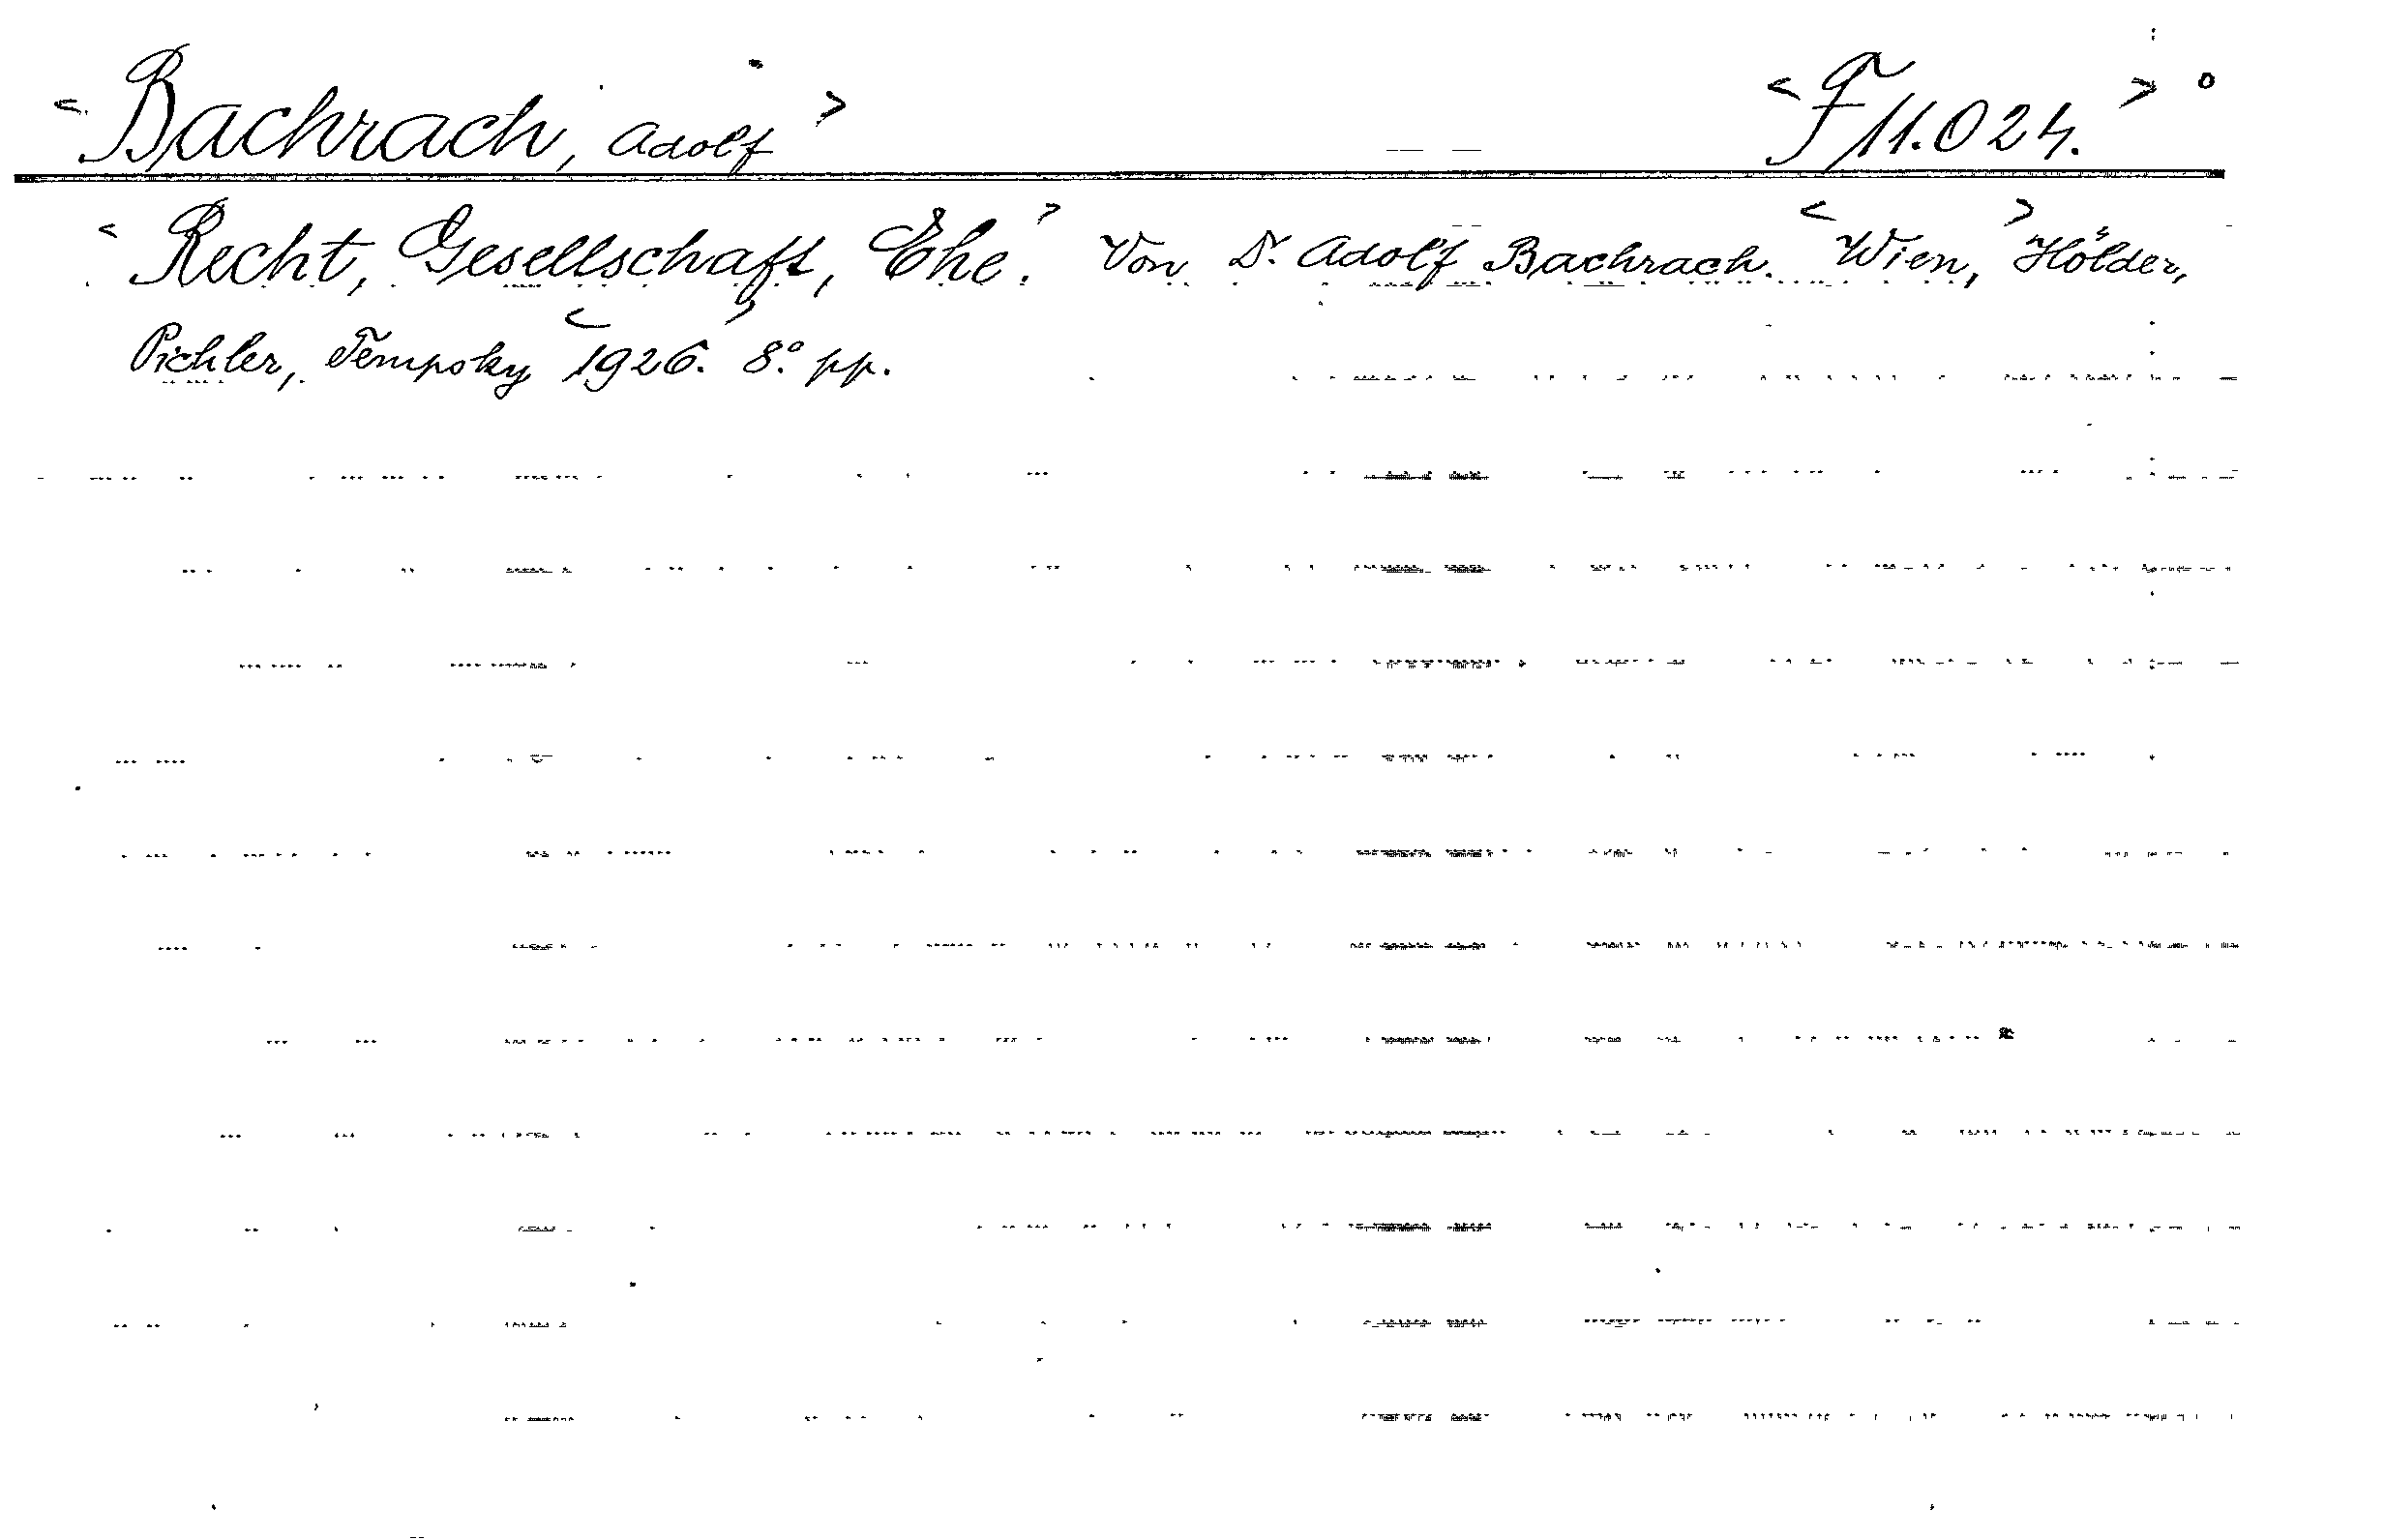 < Bachrach, Adolf > < F 11.024. > °
< Recht, Gesellschaft, Ehe. > Von Dr. Adolf Bachrach. < Wien, > Hölder,
Pichler, Tempsky < 1926. > 8.° pp.